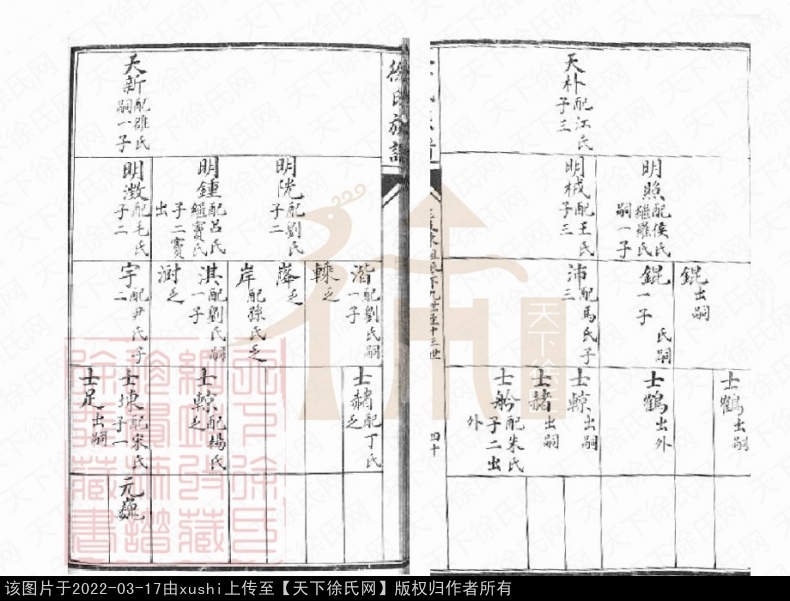 天朴配江氏
子三
明照配侯氏
繼羅氏
嗣一子
明棫配王氏
子三
錕出嗣
錕一子
氏嗣
沛配馬氏子
三
士鶴出嗣
士鶴出外
士輬出嗣
士赭出嗣
士舲配朱氏
子二出
外
四十
徐氏族譜
天新配雒氏
嗣一子
明洸配劉氏
子二
明鍾配呂氏
繼竇氏
子二竇
出
明澂配毛氏
子二
湝配劉氏嗣
一子
乏
峰乏
岸配孫氏乏
淇配劉氏嗣
一子
澍乏
宇配尹氏子
二
士赭配丁氏
乏
士輬配楊氏
乏
士埬配宋氏
子一
士足出嗣
元巍
天下徐氏网
该图片于2022-03-17由xushi上传至【天下徐氏网】版权归作者所有